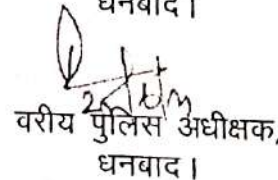 धनबाद।
वरीय पुलिस अधीक्षक,
धनबाद।